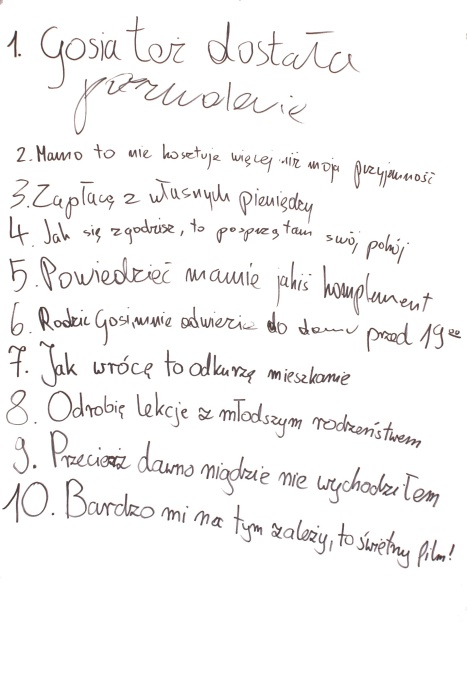 1. Gosia też dostała
pozwolenie
2. Mamo to nie kosztuje więcej niż moja przyjemność
3. Zapłacę z własnych pieniędzy
4. Jak się zgodzisz, to posprzątam swój pokój
5. Powiedzieć mamie jakiś komplement
6. Rodzic Gosi mnie odwiezie do domu przed 19⁰⁰
7. Jak wrócę to odkurzę mieszkanie
8. Odrobię lekcje z młodszym rodzeństwem
9. Przecież dawno nigdzie nie wychodziłem
10. Bardzo mi na tym zależy, to świetny film!